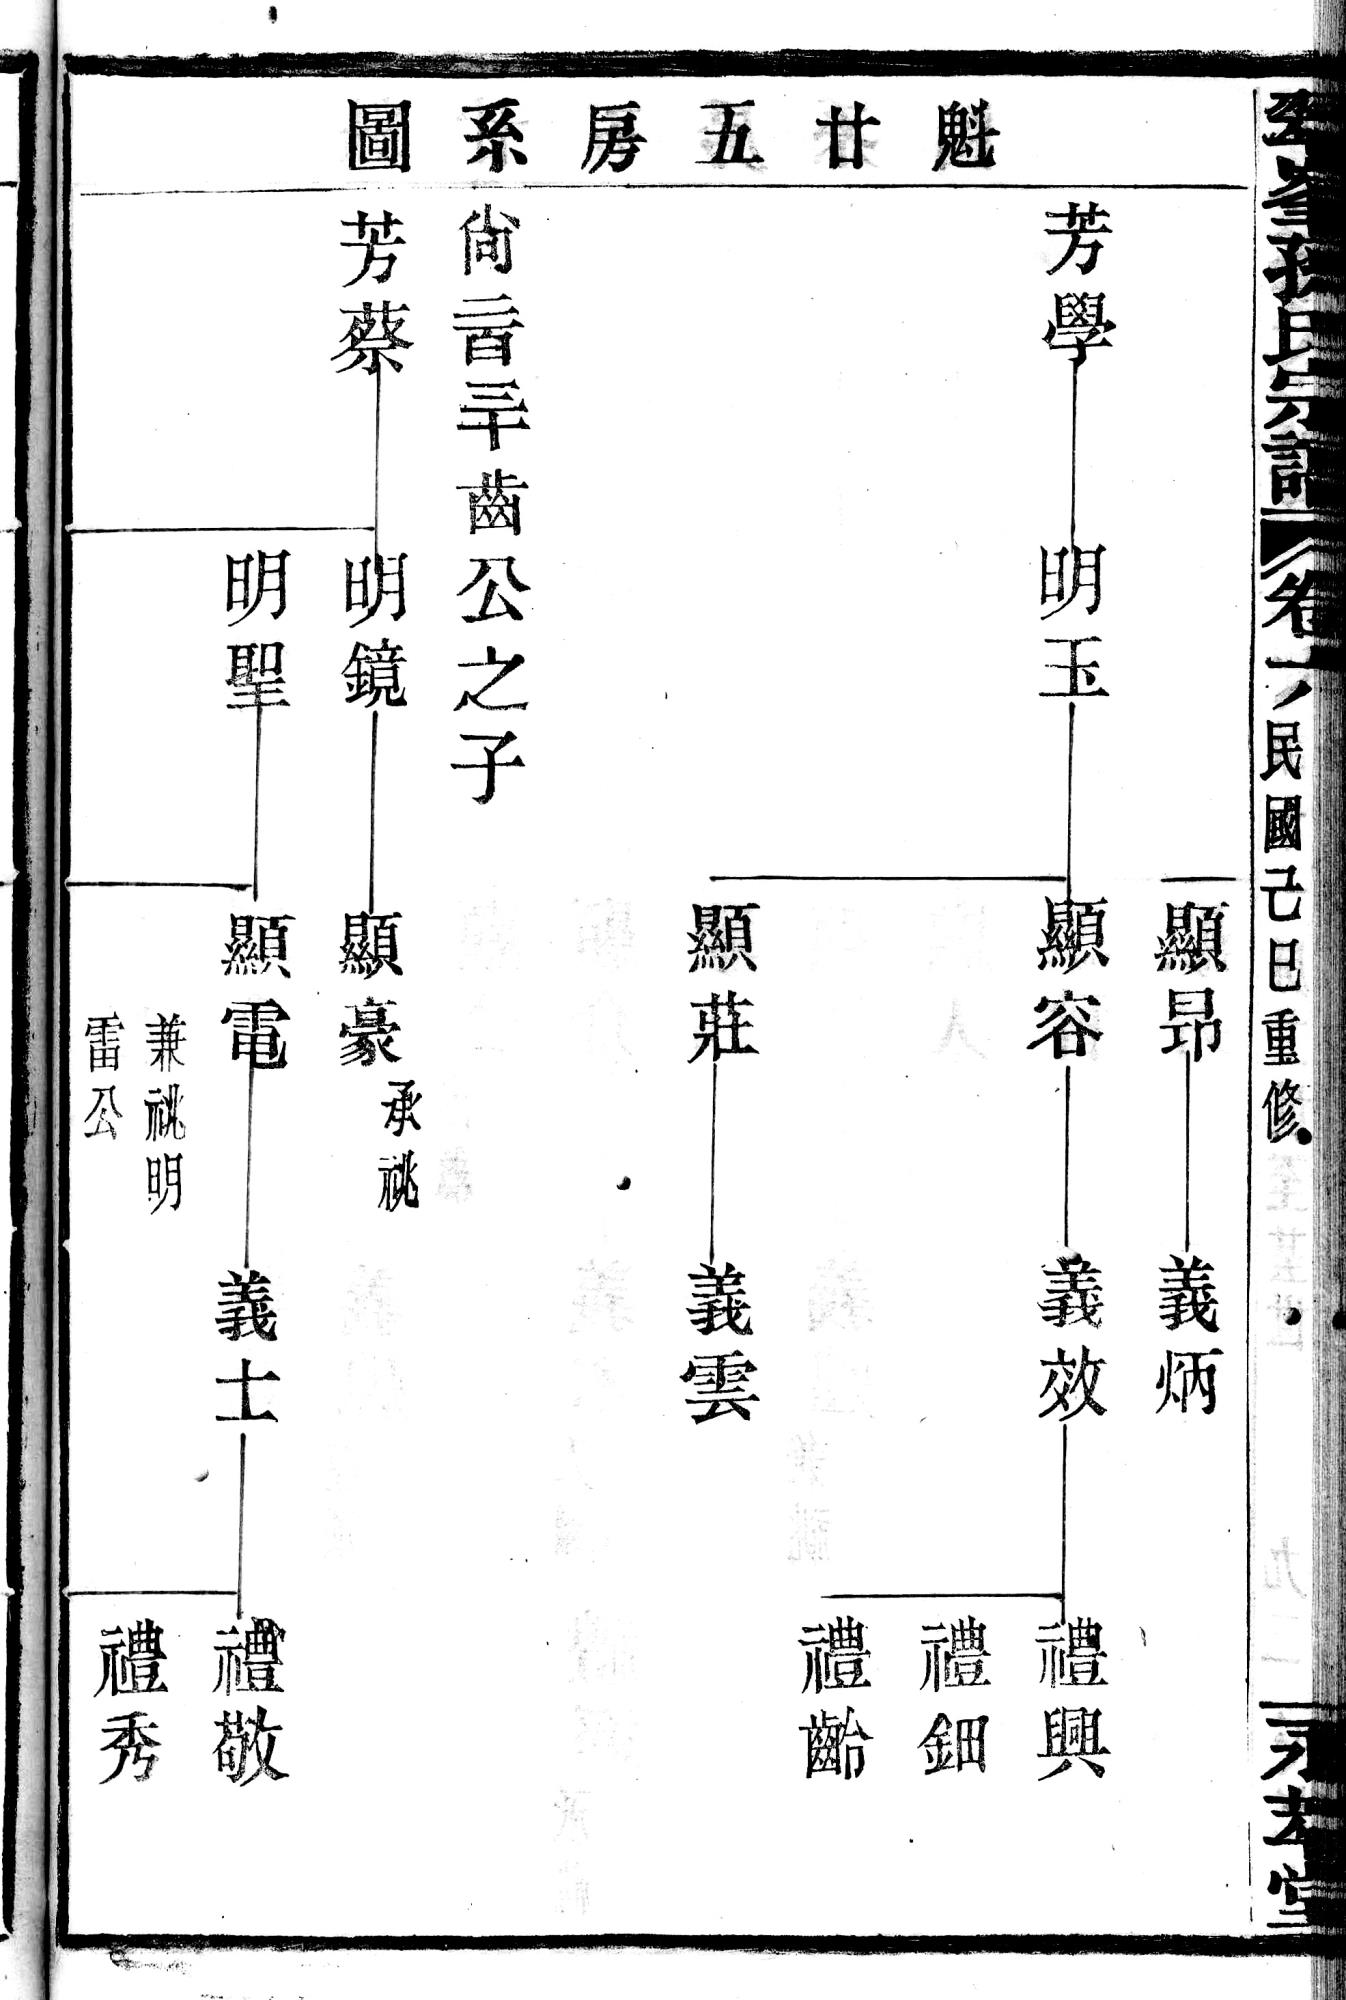 孫氏宗譜
卷
民國己巳重修
堂
魁廿五房系圖
顯昂 義炳
芳學 明玉 顯容 義效 禮興
禮鈿
禮齡
顯莊 義雲
尙二百三十齒公之子
芳蔡 明鏡 顯豪 承祧
明聖 顯電 義士 禮敬
兼祧明
雷公
禮秀